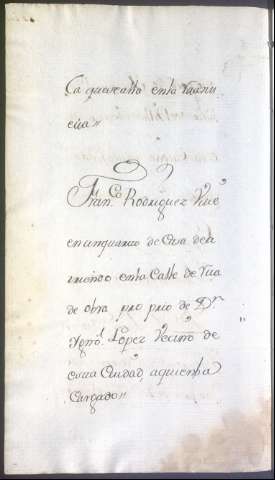 Ca quarcatto enla
cua"
Fran.co Rodriguez Vive
en un quarto de Casa de a
rriendo enla Calle de Vua
de obra pro prio de D.n
Ygno. Lopez Vecino de
esta Ciudad, aquien ha
Cargado"